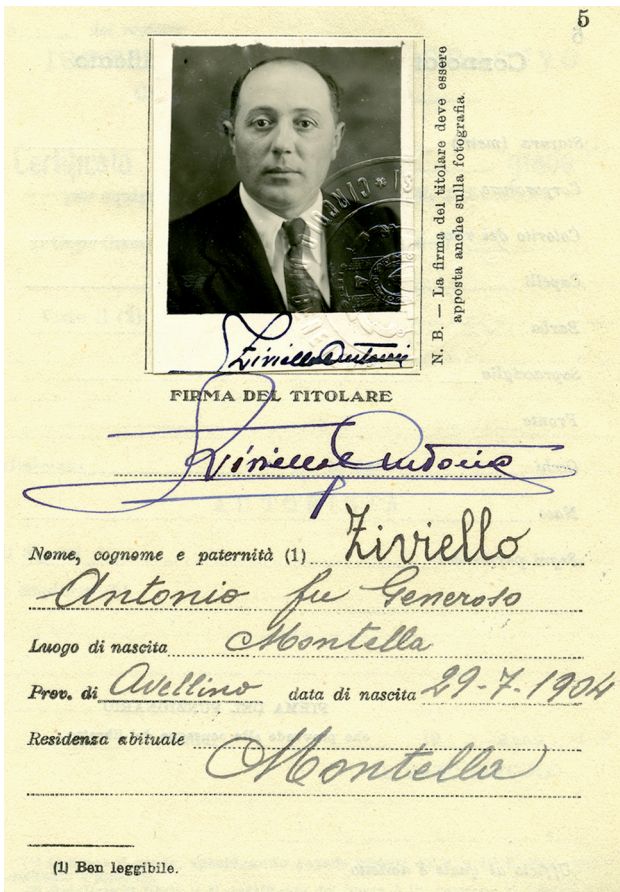 5
N. B. — La firma del titolare deve essere
apposta anche sulla fotografia.
Ziviello Antonio
FIRMA DEL TITOLARE
Ziviello Antonio
Nome, cognome e paternità (1) Ziviello
Antonio fu Generoso
Luogo di nascita Montella
Prov. di Avellino data di nascita 29-7-1904
Residenza abituale
Montella
(1) Ben leggibile.